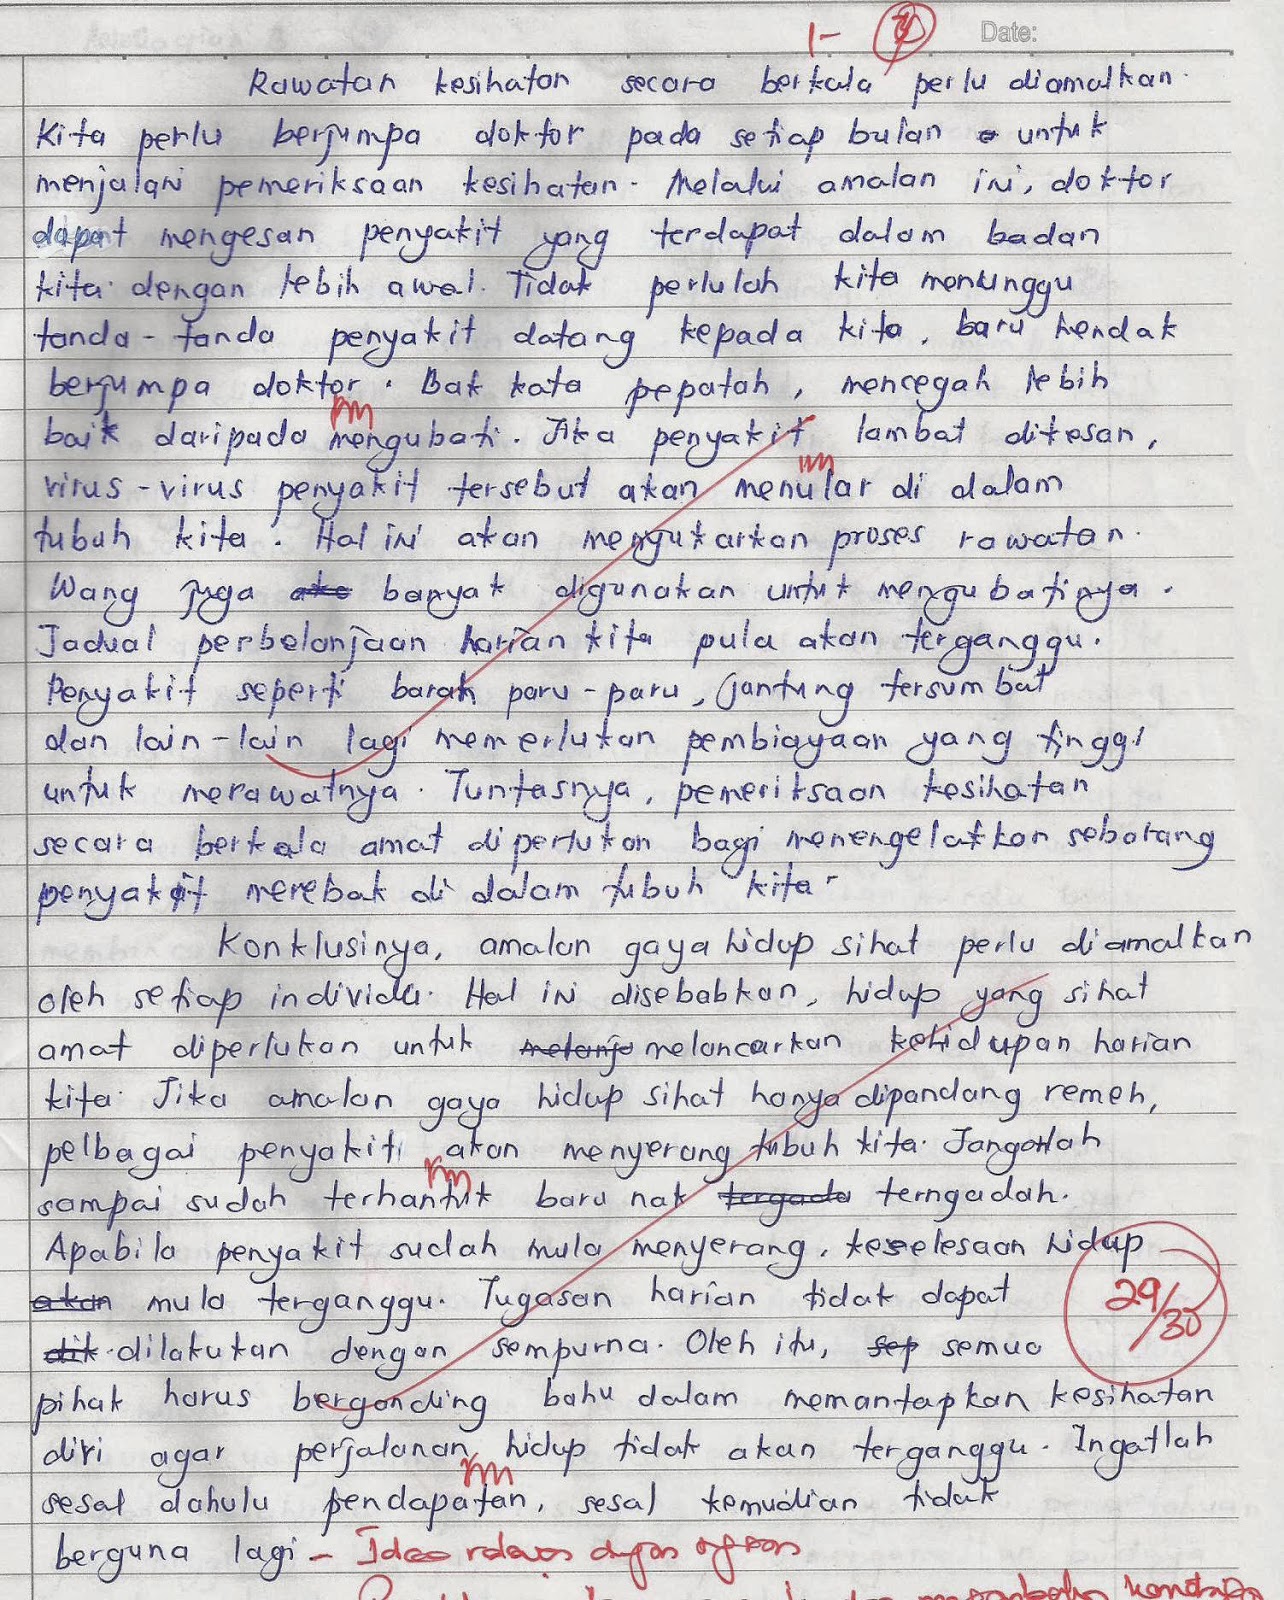 1-
Date:
Rawatan kesihatan secara berkala perlu diamalkan.
Kita perlu berjumpa doktor pada setiap bulan untuk
menjalani pemeriksaan kesihatan. Melalui amalan ini, doktor
dapat mengesan penyakit yang terdapat dalam badan
kita dengan lebih awal. Tidak perlulah kita menunggu
tanda-tanda penyakit datang kepada kita, baru hendak
berjumpa doktor. Bak kata pepatah, mencegah lebih
baik daripada mengubati. Jika penyakit lambat dikesan,
virus-virus penyakit tersebut akan menular di dalam
tubuh kita. Hal ini akan mengukarkan proses rawatan.
Wang juga ake banyak digunakan untuk mengubatinya.
Jadual perbelanjaan harian kita pula akan terganggu.
Penyakit seperti barah paru-paru, jantung tersumbat
dan lain-lain lagi memerlukan pembiayaan yang tinggi
untuk merawatnya. Tuntasnya, pemeriksaan kesihatan
secara berkala amat diperlukan bagi menengelakkan sebarang
penyakit merebak di dalam tubuh kita.
Konklusinya, amalan gaya hidup sihat perlu diamalkan
oleh setiap individu. Hal ini disebabkan, hidup yang sihat
amat diperlukan untuk melanju melancarkan kehidupan harian
kita. Jika amalan gaya hidup sihat hanya dipandang remeh,
pelbagai penyakit akan menyerang tubuh kita. Janganlah
sampai sudah terhantuk baru nak tergada terngadah.
Apabila penyakit sudah mula menyerang, keselesaan hidup
akan mula terganggu. Tugasan harian tidak dapat
dik dilakukan dengan sempurna. Oleh itu, sep semua
pihak harus berganding bahu dalam memantapkan kesihatan
diri agar perjalanan hidup tidak akan terganggu. Ingatlah
sesal dahulu pendapatan, sesal kemudian tidak
berguna lagi - Idea relevan dengan
29/30